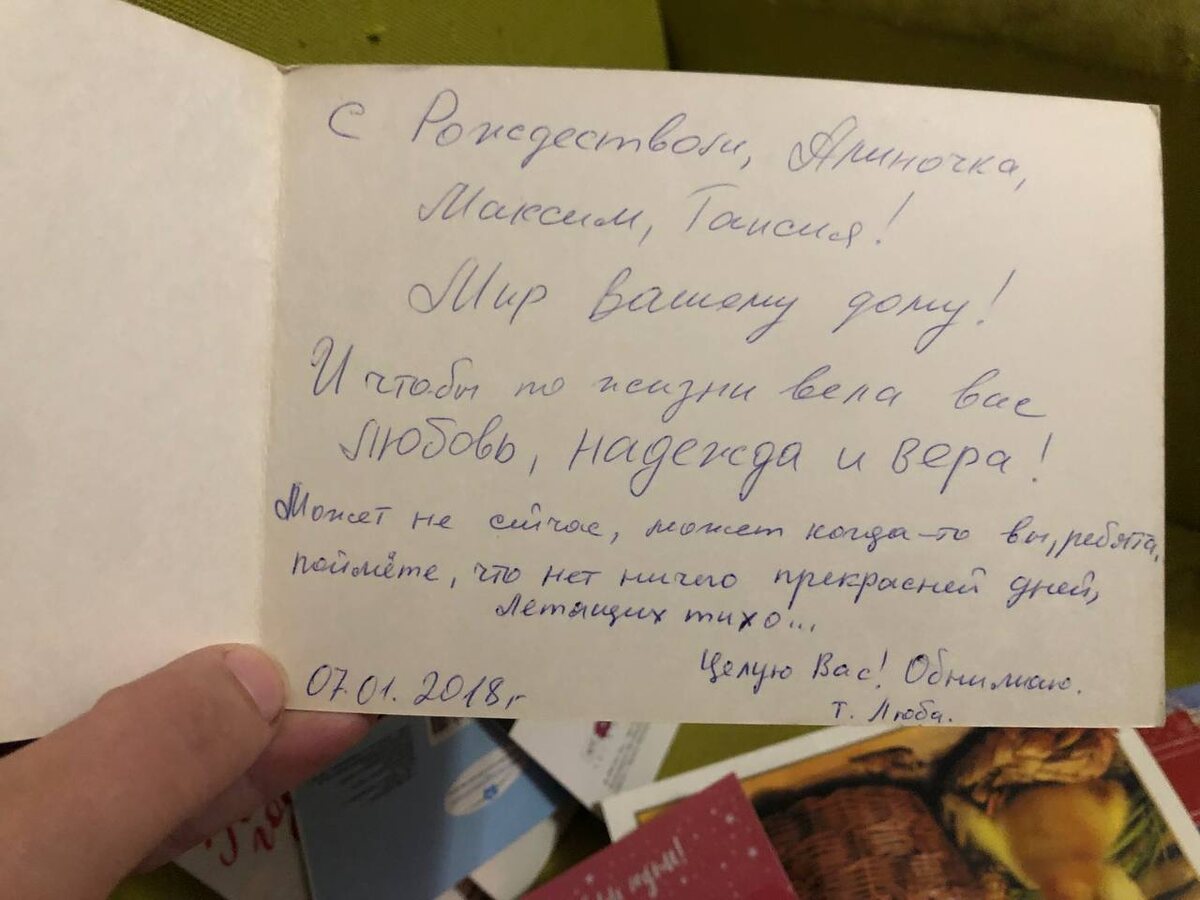 С Рождеством, Яриночка,
Максим, Таисия!
Мир вашему дому!
И чтобы по жизни вела вас
любовь, надежда и вера!
Может не сейчас, может когда-то вы, ребята,
поймёте, что нет ничего прекрасней дней,
летящих тихо...
Целую Вас! Обнимаю.
т. Люба.
07.01.2018г